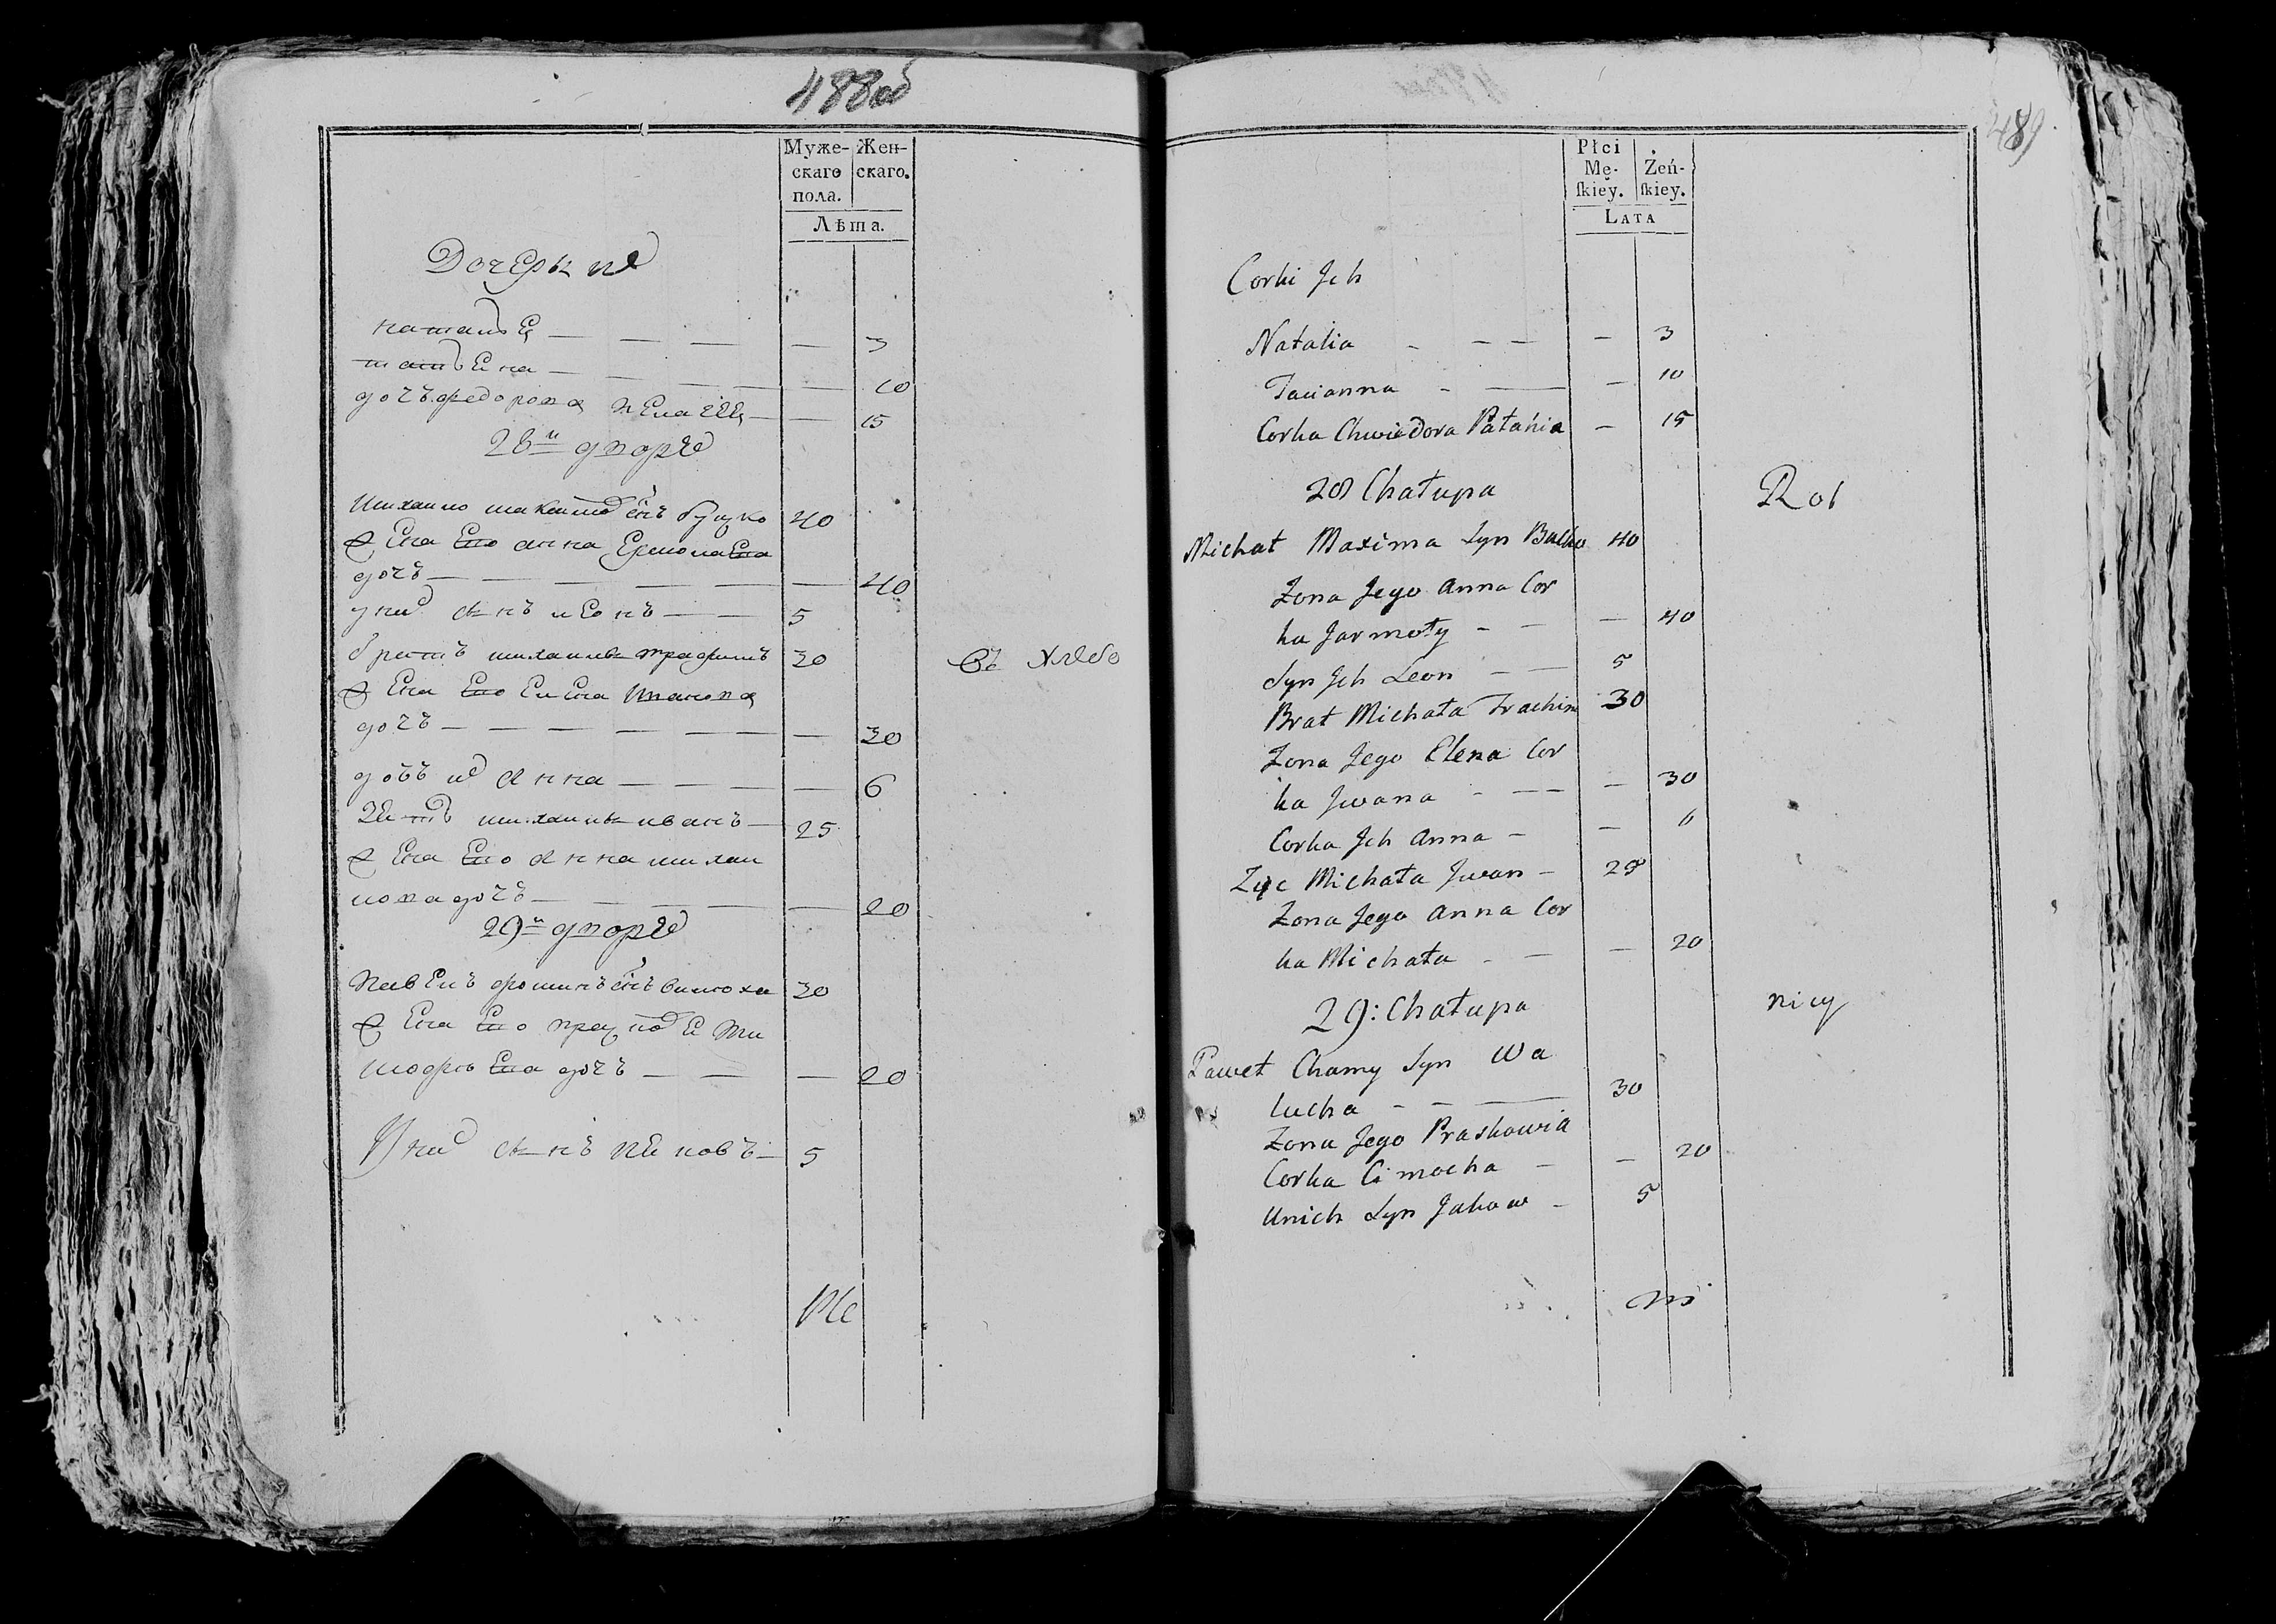 488об
Муже-
скаго
пола.
Жен-
скаго.
Лѣта.
Дочери их
наталья — — — — 3
татьяна — — — — 10
дочь федорова пелагея — — 15
28й дворъ
михайло максимов снъ 40
жена ево анна ермолаева
дочь — — — — — 40
у них сынъ леонъ — — 5
братъ михайлы трафимъ 30
жена ево елена иванова
дочь — — — — — 30
дочь их анна — — — — 6
зять михайлы иванъ — 25
жена ево анна михай
лова дочь — — — — 20
29й дворъ
павелъ фоминъ снъ валюха 30
жена ево прасковья ти
мофеева дочь — — — 20
У них сынъ яковъ — 5
Въ хлебо
489
Płci
Mę-
ſkiey.
Żeń-
ſkiey.
LATA
Corki Jch
Natalia - - - - 3
Tacianna - — - 10
Corka Chwiedora Pałahia - 15
28 Chałupa
Rol
Michał Maxima Syn 40
Zona Jego Anna Cor
ka Jarmoły - - - 40
Syn Jch Leon - — 5
Brat Michała Trachim 30
Zona Jego Elena Cor
ka Jwana - — - 30
Corka Jch Anna - - 6
Zięc Michała Jwan - 25
Zona Jego Anna Cor
ka Michała - - - 20
29: Chałupa
nicy
Paweł Chamy Syn Wa
lucha - - — 30
Zona Jego Praskowia
Corka Cimocha - - 20
Unich Syn Jakow - 5